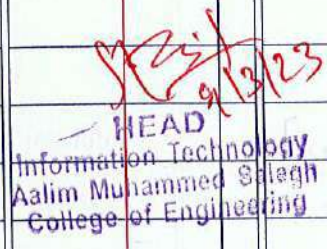 9/3/23
HEAD
Information Technology
Aalim Muhammed Salegh
College of Engineering